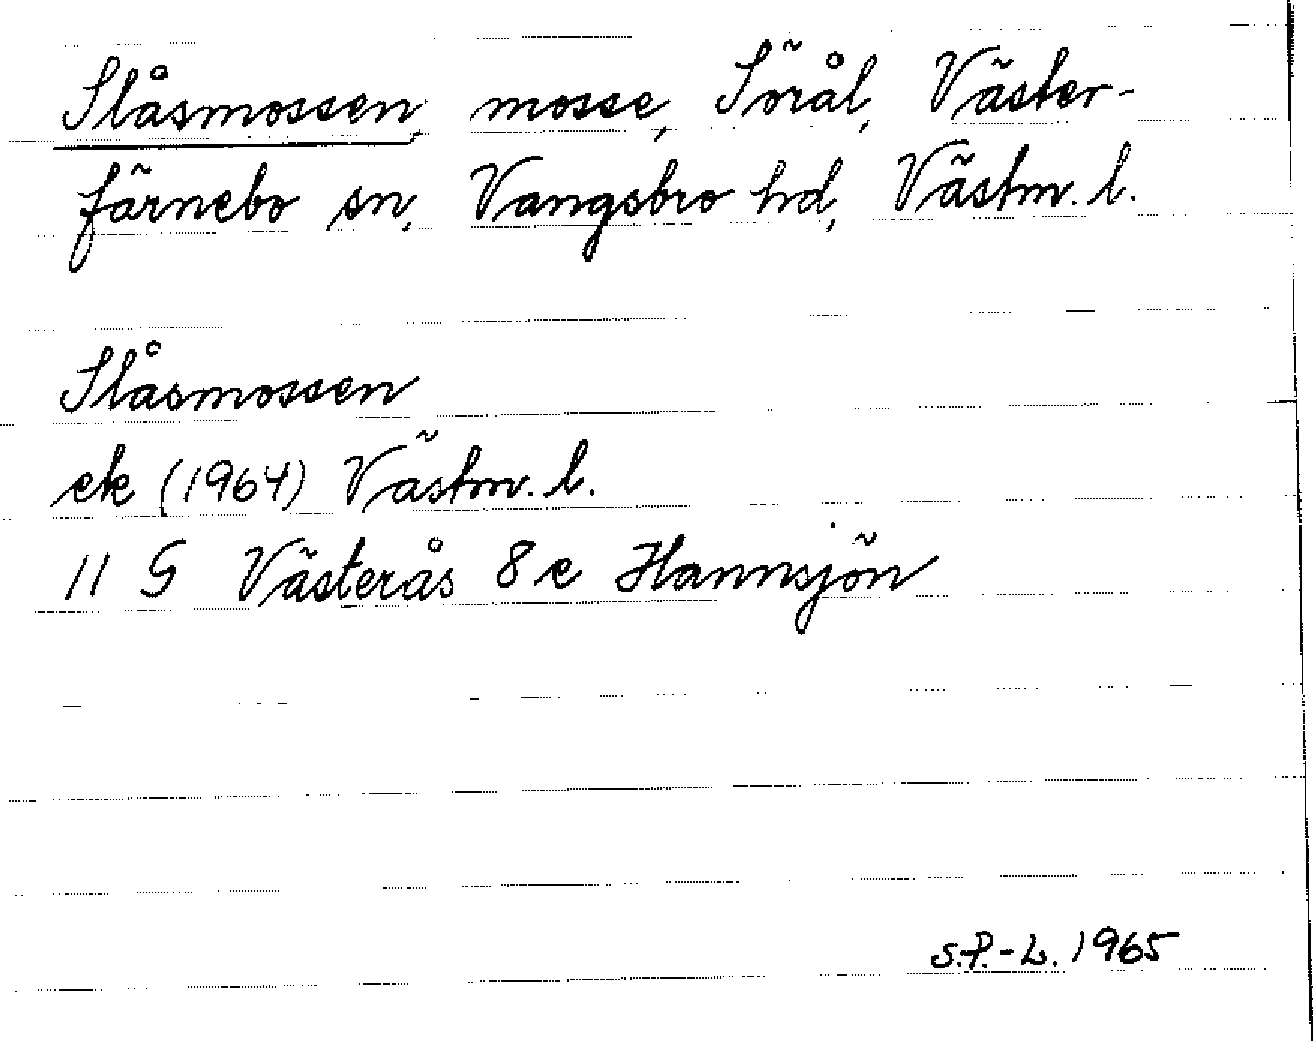 Slåsmossen, mosse, Sörål, Väster-
färnebo sn, Vangsbro hd, Västm. l.
Slåsmossen
ek (1964) Västm. l.
11 G Västerås 8 e Hannsjön
S.P.-L. 1965